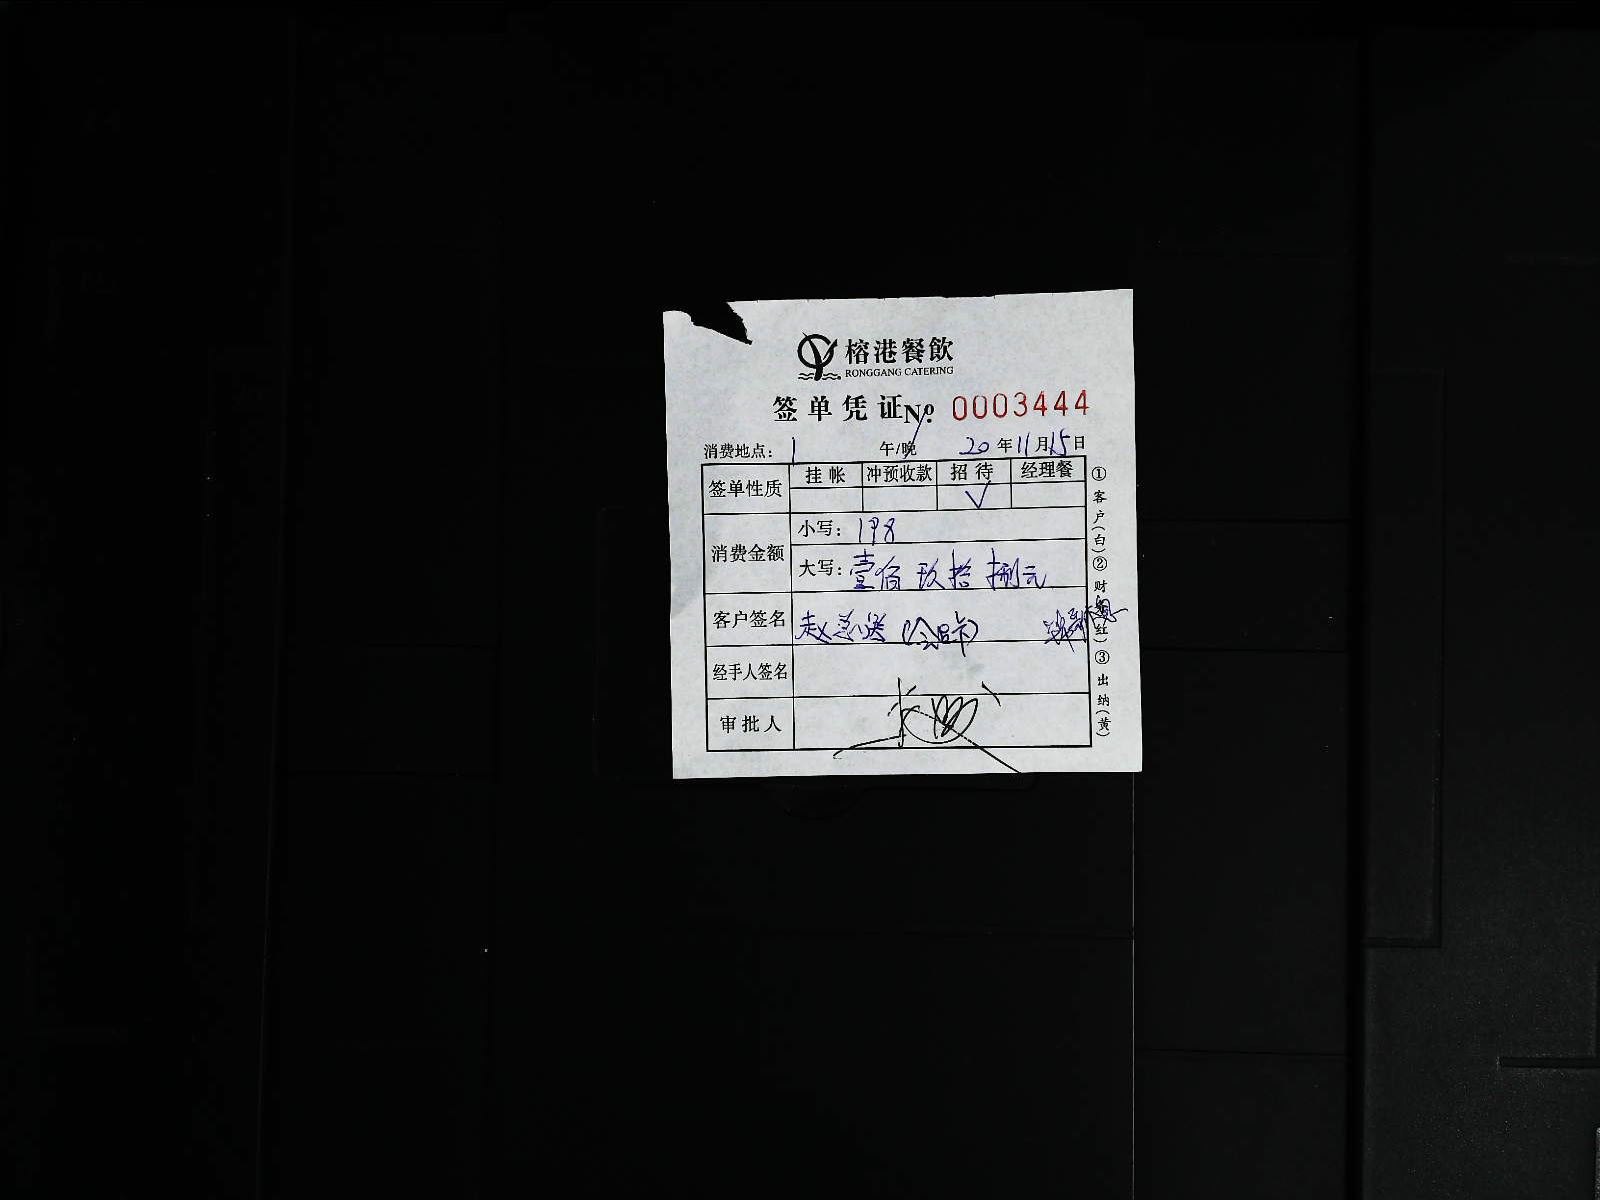 榕港餐飲
RONGGANG CATERING
签单凭证 No. 0003444
消费地点： 1 午/晚 20年11月15日
签单性质 挂帐 冲预收款 招待 经理餐
√
消费金额 小写：198
大写：壹佰玖拾捌元
客户签名 赵总送（会员卡）
经手人签名
审批人
①客户（白）②财（红）③出纳（黄）